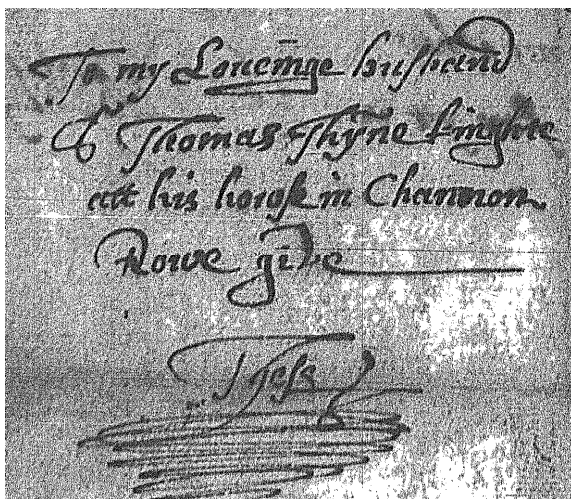 To my Loueinge husband
Sr Thomas Thynne knighte
att his howse in Channon
Rowe giue
Thess